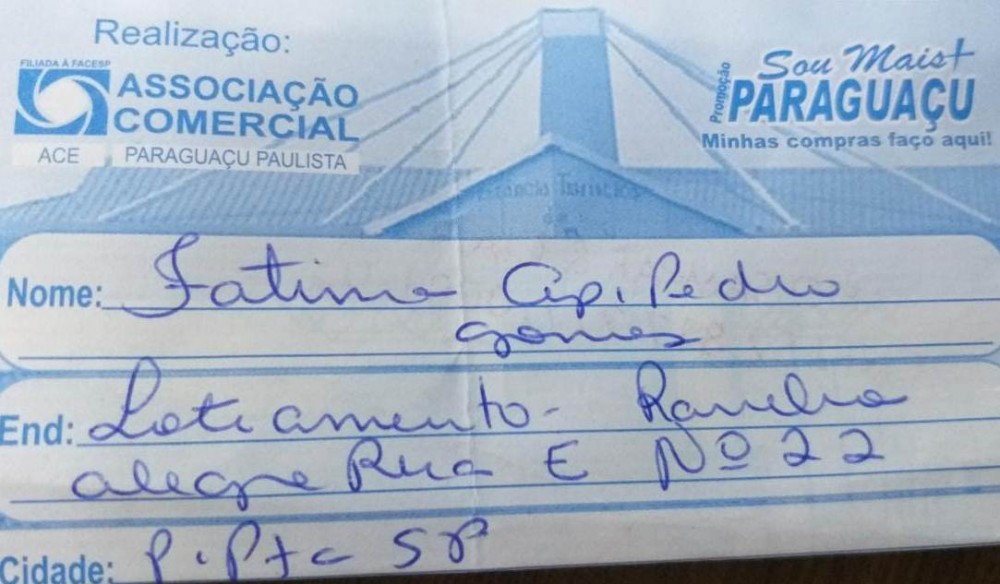 Realização:
FILIADA À FACESP
ASSOCIAÇÃO
COMERCIAL
ACE PARAGUAÇU PAULISTA
Promoção
Sou Mais+
PARAGUAÇU
Minhas compras faço aqui!
Nome: Fatima Ap. Pedro
gomes
End: Loteamento - Rancho
alegre Rua E Nº 22
Cidade: P. Pta SP